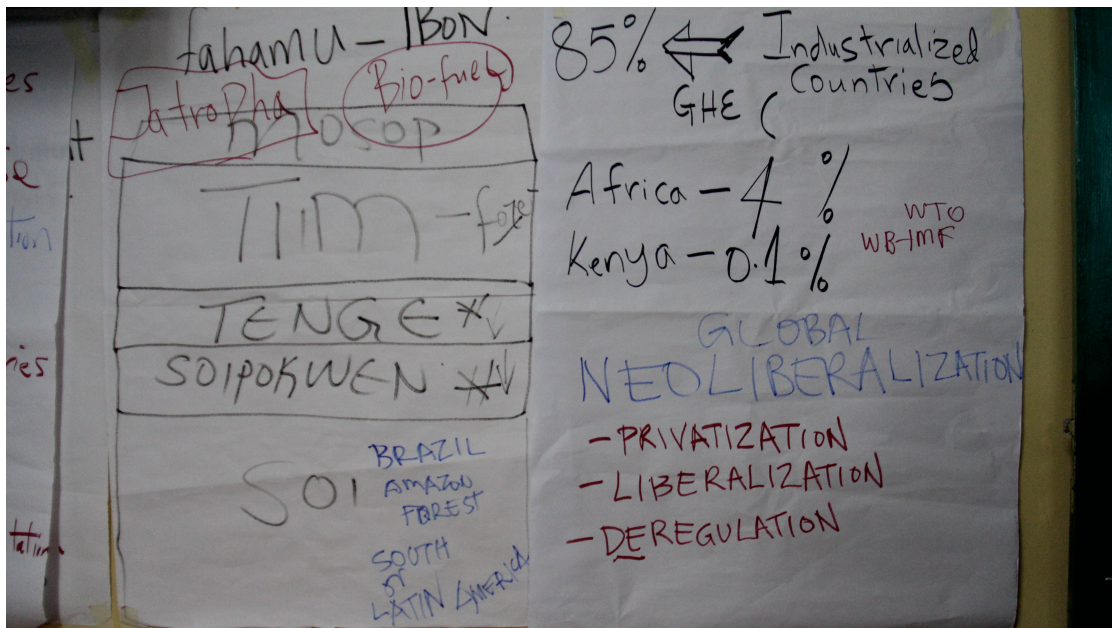 es
t
tion
ries
tation
fahamu - IBON.
Jatropha
Bio-fuel
mosop
TIIM -
TENGE
SOIPOKWEN
SOI
BRAZIL
AMAZON
FOREST
SOUTH
or
LATIN AMERICA
85% ⇐ Industrialized
Countries
GHE (
Africa - 4 %
Kenya - 0.1 %
WTO
WB-IMF
GLOBAL
NEOLIBERALIZATION
- PRIVATIZATION
- LIBERALIZATION
- DEREGULATION